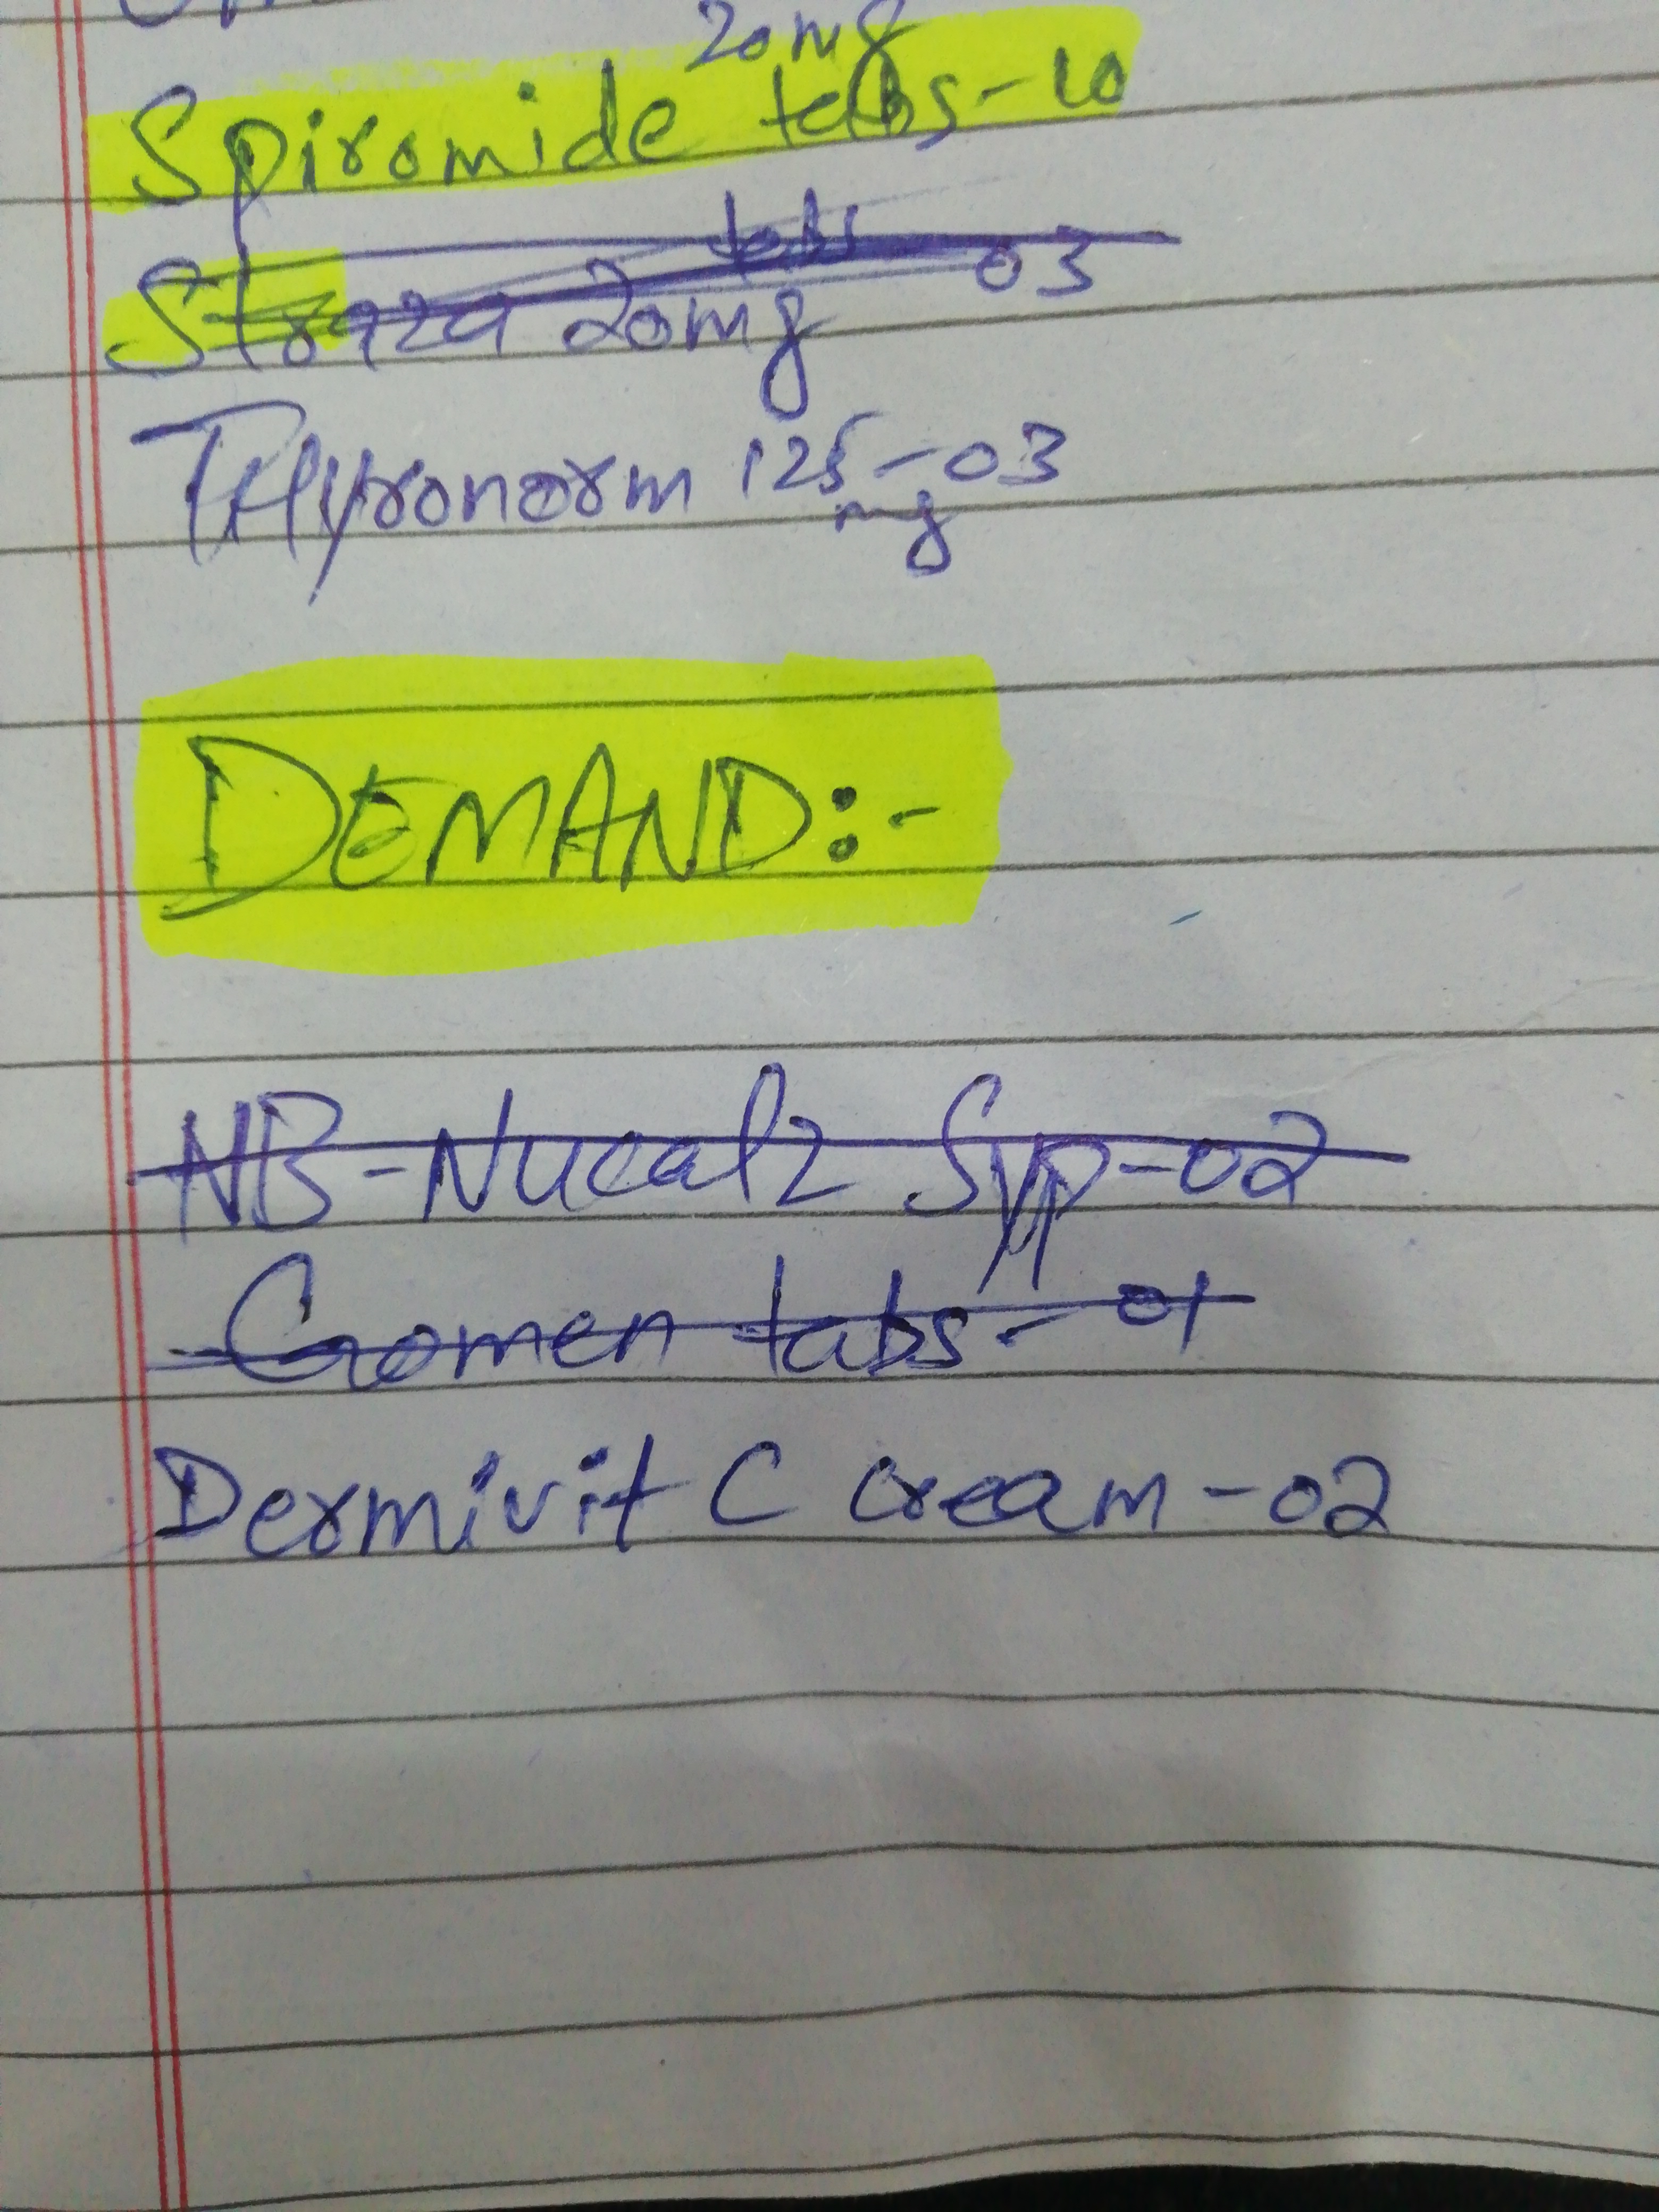 20mg
Spiromide tabs-10
tabs
Straza 20mg 03
THyronorm 125-03
mg
DEMAND:-
NB-Nucal2 Syp-02
Gomen tabs-01
Dermivit C Cream-02